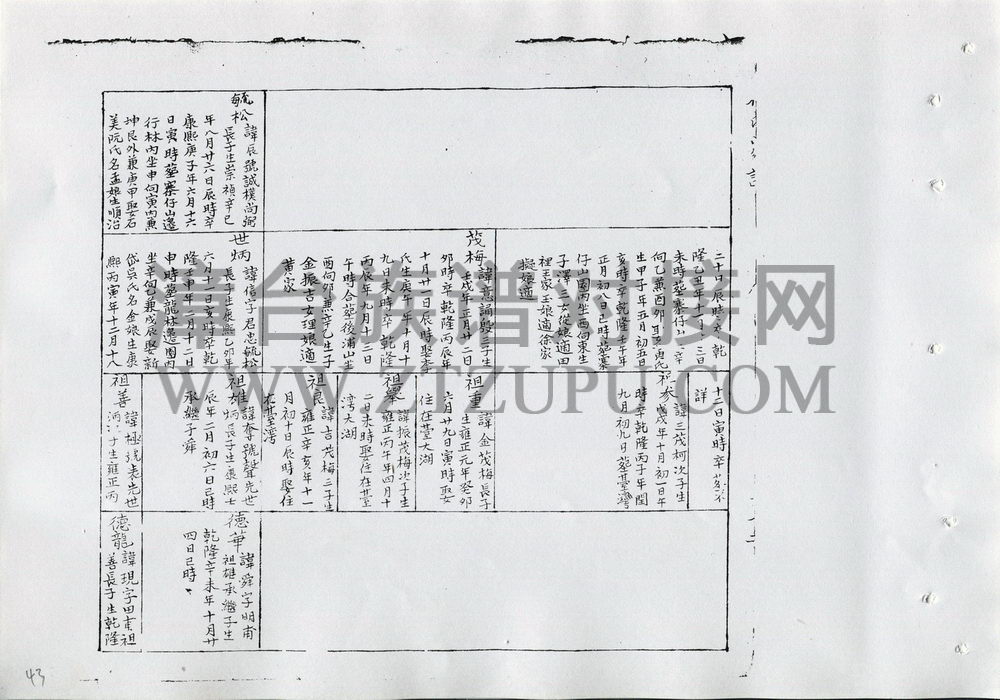 毓松
諱辰號誠樸尚弼
長子生崇禎辛巳
年八月廿六日辰時卒
康熙庚子年六月十六
日寅時塟寨仔山邊
行林內坐申向寅丙兼
坤艮外兼庚甲娶石
美阮氏名孟娘生順治
二十日辰時卒乾
隆乙丑年十二月三日
未時塟寨仔
向乙兼酉卯
生甲子年五月初五
亥時卒乾隆壬午年
正月初八日巳時
仔山園內坐西向東生
子澤二女從娘適田
裡王家玉娘適徐家
茂梅
三子生
壬戌年正月廿二日
卯時卒乾隆丙辰年
十月廿一日辰時娶李
氏生庚午年八月十
九日未時卒乾隆
丙辰年九月十三日
午時合塟後浦山坐
酉向卯兼辛乙生一子
金振吉女理娘適
黃家
世炳
諱信字君忠毓松
長子生康熙乙卯年
六月十二日亥時卒乾
隆壬申年二月十二日
申時塟龍林邊園內
坐辛向乙兼戌辰娶新
岱吳氏名金娘生康
熙丙寅年十二月十八
十二日寅時卒塟不
詳
祖參
諱三茂柯次子生
戊戌年十月初一日午
時卒乾隆丙子年閏
九月初九日塟臺灣
祖重
諱金茂梅長子
生雍正元年癸卯
六月廿九日寅時娶
住在臺大湖
諱振茂梅次子生
雍正丙午年四月十
二日未時娶住在臺
灣大湖
祖良
諱吉茂梅三子生
雍正辛亥年十一
月初十日辰時娶住
在臺灣
祖雄
諱奪號聲先世
炳長子生康熙壬
辰年二月初六日巳時
承繼子舜
祖善
諱極號表先世
炳次子生雍正丙
德華
諱舜字明甫
祖雄承繼子生
乾隆辛未年十月廿
四日巳時
德龍
諱現字田甫祖
善長子生乾隆
臺台族譜對接網
WWW.ZTZUPU.COM
43